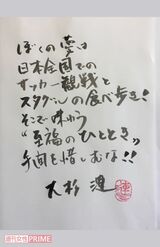 ぼくの夢は
日本全国での
サッカー観戦と
スタグルの食べ歩き!
そこで味わう
"至福のひととき"
手間を惜しむな!!
大杉漣
漣
週刊女性PRIME